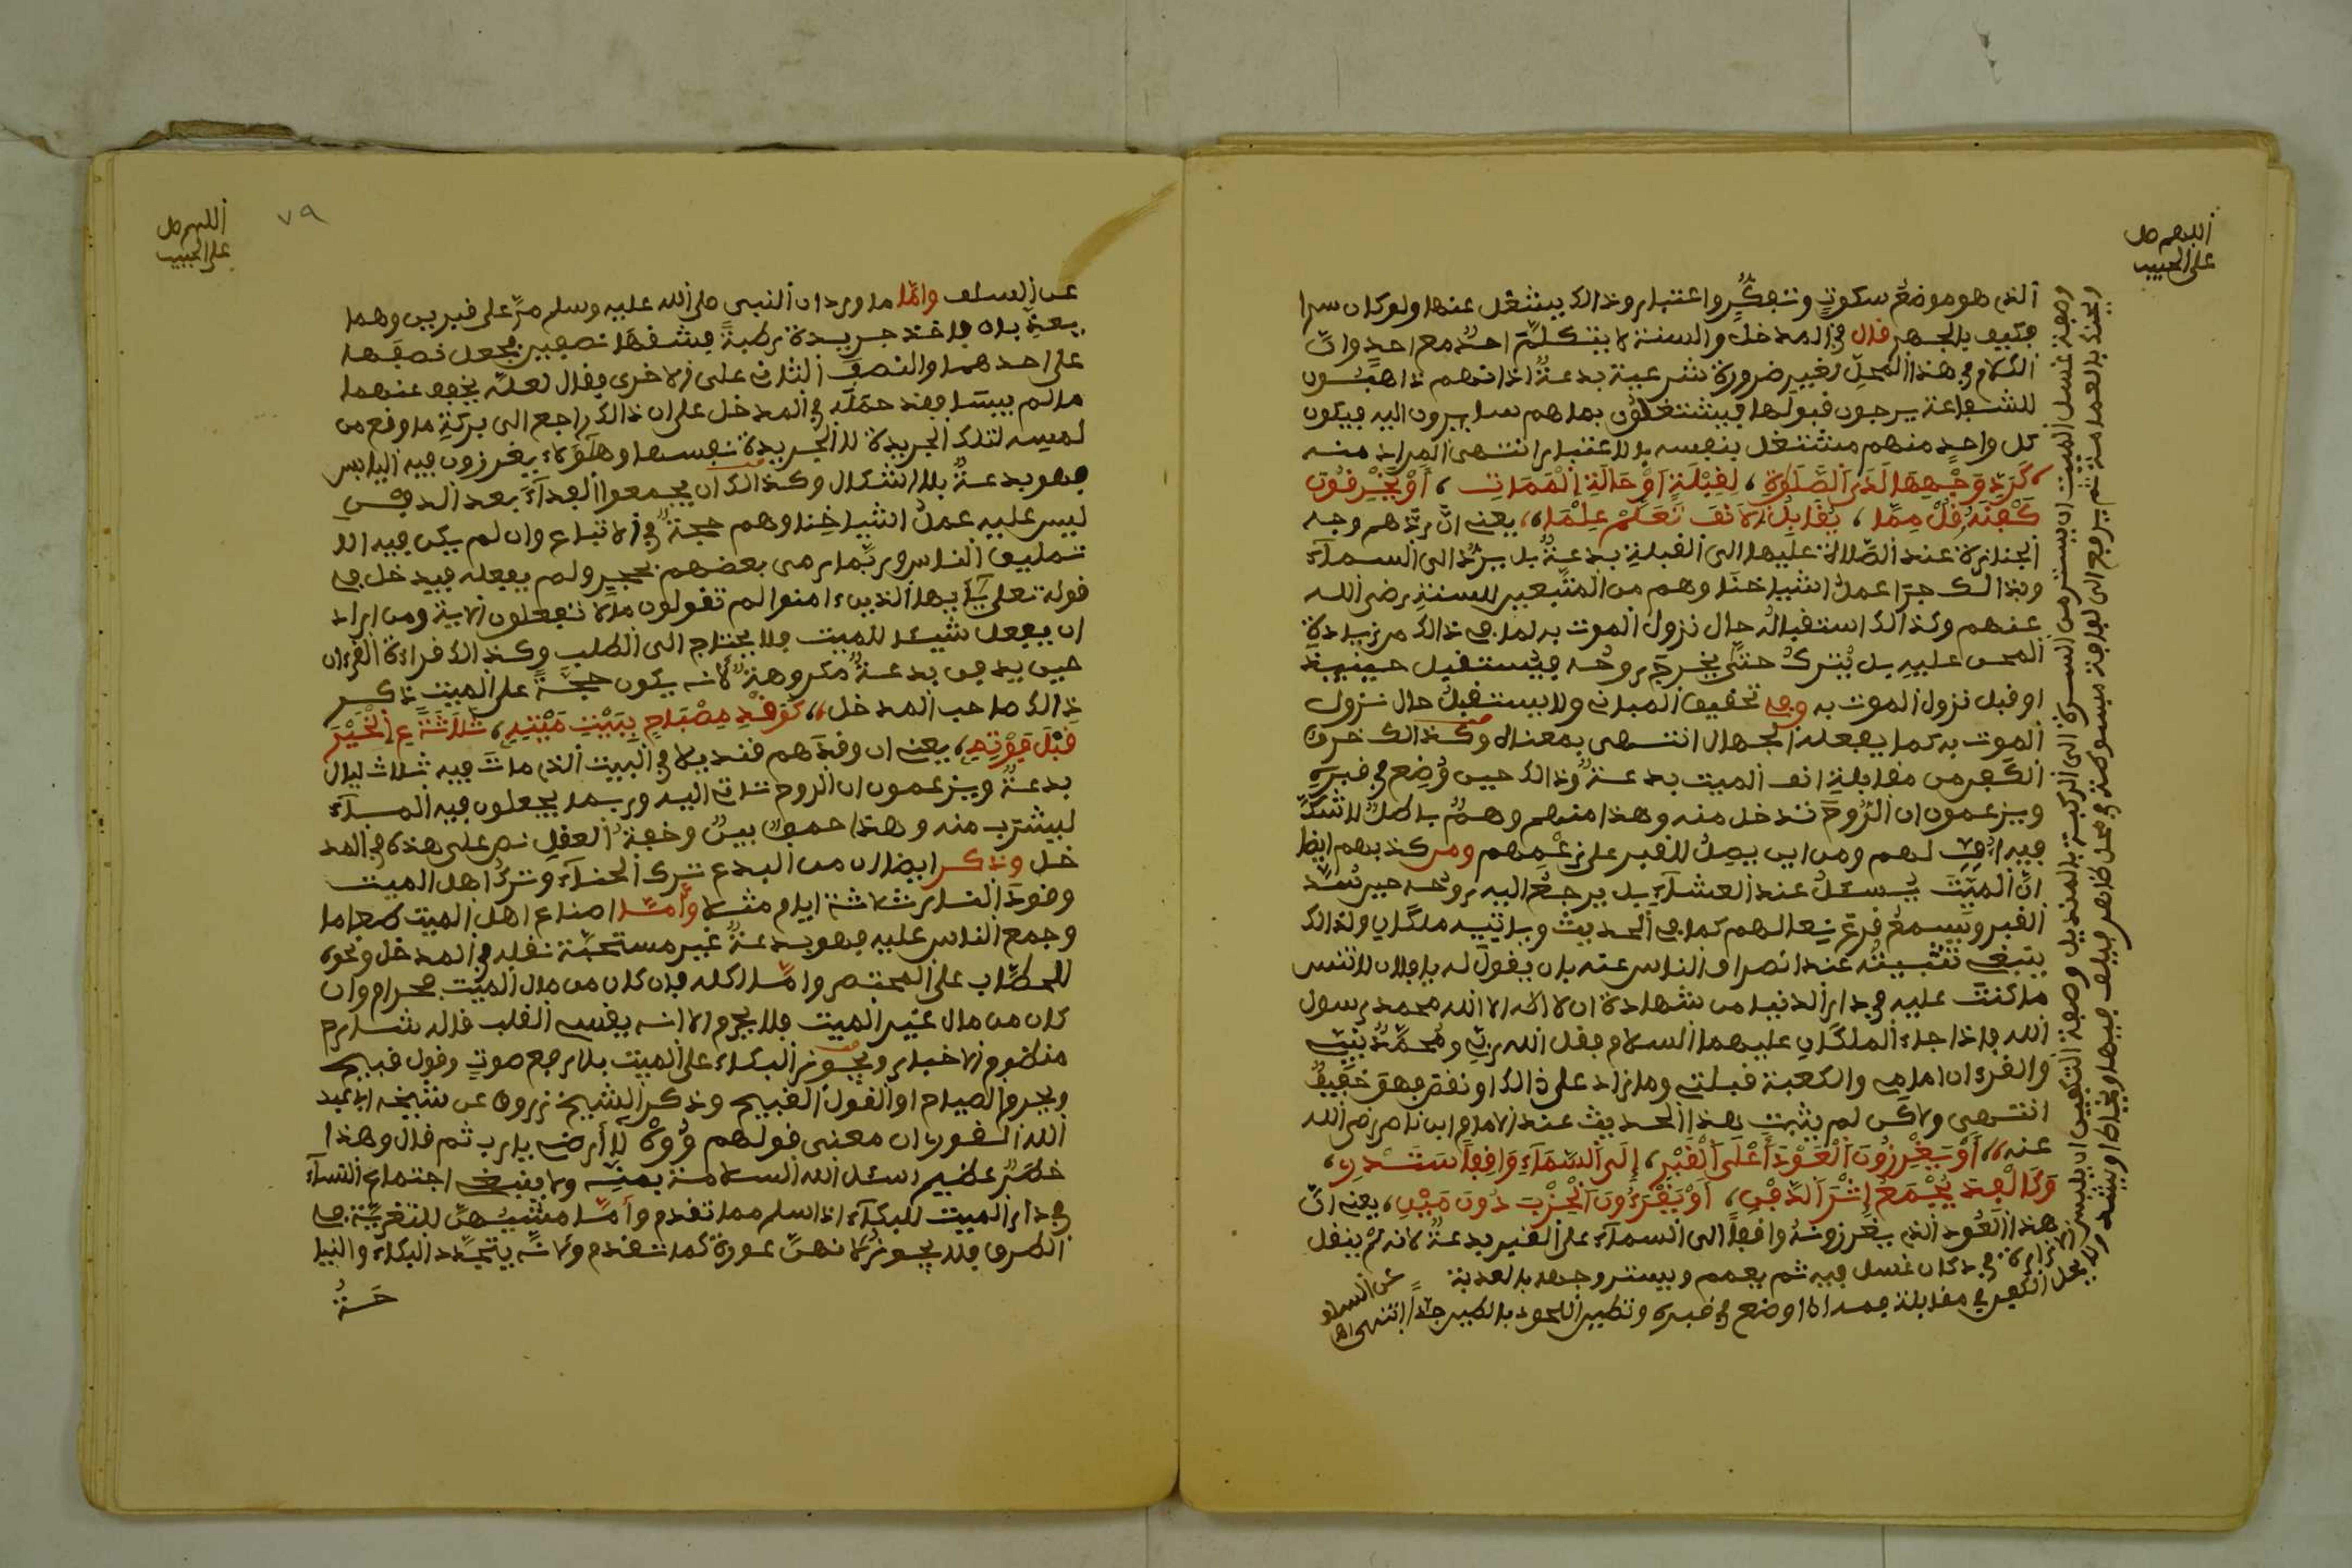 اللهم صل
على الحبيب
الذي هو موضع سكوتٍ وتفكُّرٍ واعتبار وذالك يشغل عنها ولو كان سرا
فكيف بالجهر قال في المدخل والسنة لا يتكلم احدٌ مع احدٍ وانّ
الكلام في هذا المحلّ لغير ضرورة شرعية بدعةٌ اذ انهم ذاهبون
للشفاعة يرجون قبولها فيشتغلون بما هم سايرون اليه فيكون
كل واحدٍ منهم مشتغل بنفسه بالاعتبار انتهى المراد منه
كَرَدِّ وَجْهِهَا لَدَى الصَّلَوةِ، لِقِبْلَةٍ أَوْ حَالَةِ الْمَمَاتِ، أَوْ بِخَرْقُونَ
كَفِنَهُ قُلْ مِمَّا، يُقَابِلُ الْأَنْفَ تَعَلَّمْ عِلْمَا، يعني انّ ردهم وجه
الجنازة عند الصّلاة عليها الى القبلة بدعةٌ بل يردّ الى السماء
وبذالك جرا عملُ اشياخنا وهم من المتّبعين للسنة رضي الله
عنهم وكذالك استقبالُه حال نزول الموت به لما في ذالك من زيادة
المحن عليه بل يُترك حتّى يخرج روحُه فيُستقبل حينئذ
او قبل نزول الموت به وفي تحقيق المباني ولا يستقبلُ حال نزول
الموت به كما يفعله الجهال انتهى بمعناه وكذالك خرق
الكفن من مقابلة انف الميت بدعةٌ وذالك حين وُضِع في قبره
ويزعمون ان الرُّوحَ تدخل منه وهذا منهم وهمٌ باطلٌ لا شكّ
فيه لهم ومن اين يصلُ للقبر على زعمهم ومن كذبهم ايضا
انّ الميّتَ يُسئلُ عند العشاء بل يرجعُ اليه روحه حين سُدّ
القبر ويَسمعُ قرع نعالهم كما في الحديث وياتيه ملكان ولذالك
ينبغي تثبيتُه عند انصراف الناس عنه بان يقول له يا فلان لا تنس
ما كنت عليه في دار الدنيا من شهادة ان لا اله الا الله محمد رسول
الله فاذا جاءَ الملكان عليهما السلام فقل الله ربّي ومحمّدٌ نبيّي
والقرءان امامي والكعبة قبلتي وما زاد على ذالك او نقص فهو خفيفٌ
انتهى ولاكن لم يثبت بهذا الحديث عند الامام ابن ناصر رضي الله
عنه، أَوْ يَغْرِزُونَ الْعَوْدَ أَعْلَى الْقَبْرِ، إِلَى السَّمَاءِ وَاقِفاً سَتَدْرِ،
وَكَالْفِدَ يُجْمَعُ إِثْرَ الدَّفْنِ، أَوْ يَقْرَءُونَ الْحِزْبَ دُونَ مَيْنِ، يعني انّ
هذا العُود الذي يغرزونهُ واقفاً الى السماء على القبر بدعةٌ لانه لم ينقل
عن السلف
وصفة غسل الميت ان يستر من السرة الى الركبة بالمنديل وصفة التكفين ان يلبس الازرة
في دكان غسل فيه ثم يعمم ويستر وجهه بالعذبة
ويحل الكفن في مقابلة فمه اذا وضع في قبره وتطيين اللحود بالطين جدا انتهى
اللهم صل
على الحبيب
٧٩
عن السلف وامّا ما ورد ان النبي صلى الله عليه وسلم مرّ على قبرين وهما
يعذبان فاخذ جريدة رطبةً فشقّها نصفين فجعل نصفها
على احدهما والنصفَ الثاني على الاخرى فقال لعلّه يخفف عنهما
ما لم ييبسا فقد حمله في المدخل على ان ذالك راجع الى بركةِ ما وقع من
لمسه لتلك الجريدة لا الجريدة نفسها وهاؤلاء يغرزون فيه اليابس
فهو بدعةٌ بلا اشكال وكذالك ان يجمعوا الفداءَ بعد الدفن
ليس عليه عملُ اشياخنا وهم حجةٌ في الاتباع وان لم يكن فيه الا
تمليق الناس وربّما رمى بعضهم بحجر ولم يفعله فيدخل في
قوله تعلى يأيها الذين ءامنوا لم تقولون ما لا تفعلون الاية ومن اراد
ان يفعل شيئا للميت فلا يحتاج الى الطلب وكذالك قراءة القرءان
حين يدفن بدعةٌ مكروهةٌ لأنه يكون حجّةً على الميت ذكر
ذالك صاحب المدخل، كَوَقْدِ مِصْبَاحٍ بِبَيْتِ مَيِّتِهِ، ثَلَاثَةً عِ الْخَيْرَ
قَبْلَ فَوْتِهِ، يعني ان وقدهم قنديلا في البيت الذي ماتَ فيه ثلاث ليال
بدعةٌ ويزعمون ان الروح تاتي اليه وربما يجعلون فيه الماءَ
ليشرب منه وهذا حمقٌ بينٌ وخفةُ العقلِ نص على هذه في المد
خل وذكر ايضا ان من البدع تركَ الحناءِ وتركُ اهل الميت
وقودَ النار ثلاثةَ ايام مثلا وأمّا اصناع اهل الميت طعاما
وجمع الناس عليه فهو بدعةٌ غير مستحبّة نقله في المدخل ونحوه
للحطّاب على المختصر وامّا اكله فان كان من مال الميّت فحرام وان
كان من مال غير الميت فلا يحرم الا انه يقسي القلب قاله شارح
منظوم الاخبار ويجوز البكاء على الميت بلا رفع صوتٍ وقول قبيح
ويحرم الصياح او القول القبيح وذكر الشيخ زروق عن شيخه ابي عبد
الله القوري ان معنى قولهم وُوهْ لا أرضى يا رب ثم قال وهذا
خطرٌ عظيم نسئل الله السلامة بمنّه ولا ينبغي اجتماع النساء
في دار الميت للبكاء اذا سلم مما تقدم وأمّا مشيُهنّ للتعزيّة في
الطرق فلا يجوز لأنهنّ عورة كما تقدم ولأنّه يتجدّد البكاء والنيا
حَةُ